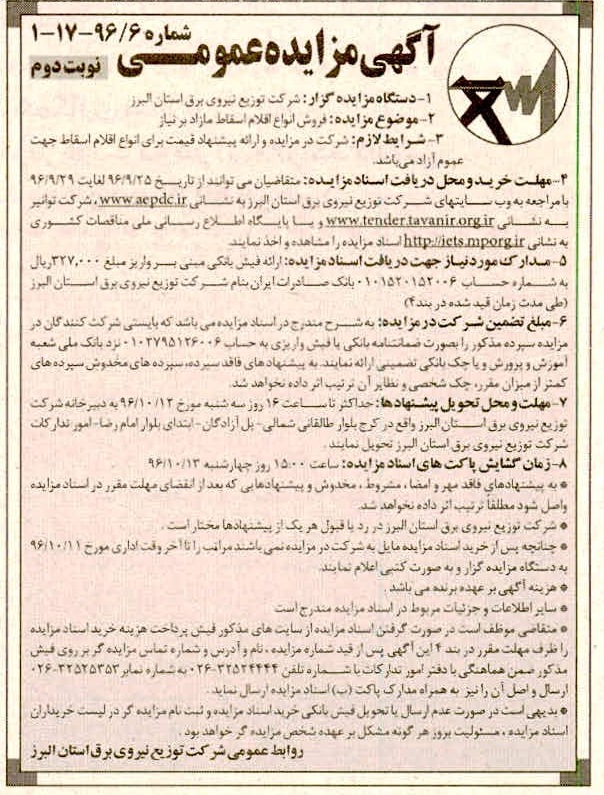 شماره ۹۶/۶-۱۷-۱
آگهی مزایده عمومی
نوبت دوم
۱- دستگاه مزایده گزار: شرکت توزیع نیروی برق استان البرز
۲- موضوع مزایده: فروش انواع اقلام اسقاط مازاد بر نیاز
۳- شرایط لازم: شرکت در مزایده و ارائه پیشنهاد قیمت برای انواع اقلام اسقاط جهت
عموم آزاد می‌باشد.
۴- مهلت خرید و محل دریافت اسناد مزایده: متقاضیان می توانند از تاریخ ۹۶/۹/۲۵ لغایت ۹۶/۹/۲۹
با مراجعه به وب سایتهای شرکت توزیع نیروی برق استان البرز به نشانی www.aepdc.ir ، شرکت توانیر
به نشانی www.tender.tavanir.org.ir و یا پایگاه اطلاع رسانی ملی مناقصات کشوری
به نشانی http://iets.mporg.ir اسناد مزایده را مشاهده و اخذ نمایند.
۵- مدارک مورد نیاز جهت دریافت اسناد مزایده: ارائه فیش بانکی مبنی بر واریز مبلغ ۳۲۷,۰۰۰ ریال
به شماره حساب ۰۱۰۱۵۲۰۱۵۲۰۰۶ بانک صادرات ایران بنام شرکت توزیع نیروی برق استان البرز
(طی مدت زمان قید شده در بند۴)
۶- مبلغ تضمین شرکت در مزایده: به شرح مندرج در اسناد مزایده می باشد که بایستی شرکت کنندگان در
مزایده سپرده مذکور را بصورت ضمانتنامه بانکی یا فیش واریزی به حساب ۰۱۰۲۷۹۵۱۲۶۰۰۶ نزد بانک ملی شعبه
آموزش و پرورش و یا چک بانکی تضمینی ارائه نمایند. به پیشنهاد های فاقد سپرده، سپرده های مخدوش سپرده های
کمتر از میزان مقرر، چک شخصی و نظایر آن ترتیب اثر داده نخواهد شد.
۷- مهلت و محل تحویل پیشنهادها: حداکثر تا ساعت ۱۶ روز سه شنبه مورخ ۹۶/۱۰/۱۲ به دبیرخانه شرکت
توزیع نیروی برق استان البرز واقع در کرج بلوار طالقانی شمالی- پل آزادگان- ابتدای بلوار امام رضا- امور تدارکات
شرکت توزیع نیروی برق استان البرز تحویل نمایند .
۸- زمان گشایش پاکت های اسناد مزایده: ساعت ۱۵:۰۰ روز چهارشنبه ۹۶/۱۰/۱۳
* به پیشنهادهای فاقد مهر و امضا ، مشروط ، مخدوش و پیشنهادهایی که بعد از انقضای مهلت مقرر در اسناد مزایده
واصل شود مطلقا ترتیب اثر داده نخواهد شد.
* شرکت توزیع نیروی برق استان البرز در رد یا قبول هر یک از پیشنهادها مختار است .
* چنانچه پس از خرید اسناد مزایده مایل به شرکت در مزایده نمی باشند مراتب را تا آخر وقت اداری مورخ ۹۶/۱۰/۱۱
به دستگاه مزایده گزار و به صورت کتبی اعلام نمایند.
* هزینه آگهی بر عهده برنده می باشد .
* سایر اطلاعات و جزئیات مربوط در اسناد مزایده مندرج است
* متقاضی موظف است در صورت گرفتن اسناد مزایده از سایت های مذکور فیش پرداخت هزینه خرید اسناد مزایده
را ظرف مهلت مقرر در بند ۴ این آگهی پس از قید شماره مزایده ، نام و آدرس و شماره تماس مزایده گر بر روی فیش
مذکور ضمن هماهنگی با دفتر امور تدارکات با شماره تلفن ۳۲۵۲۴۴۴۴-۰۲۶ به شماره نمابر ۳۲۵۲۵۳۵۳-۰۲۶
ارسال و اصل آن را نیز به همراه مدارک پاکت (ب) اسناد مزایده ارسال نماید .
* بدیهی است در صورت عدم ارسال یا تحویل فیش بانکی خرید اسناد مزایده و ثبت نام مزایده گر در لیست خریداران
اسناد مزایده ، مسئولیت بروز هر گونه مشکل بر عهده شخص مزایده گر خواهد بود .
روابط عمومی شرکت توزیع نیروی برق استان البرز